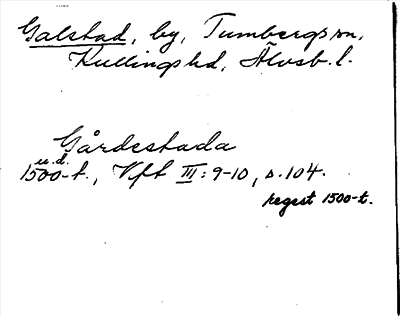 Galstad, by, Tumbergs sn,
Kullings hd, Älvsb. l.
Gårdestada
u.d.
1500-t., Vft III: 9-10, s. 104.
regest 1500-t.